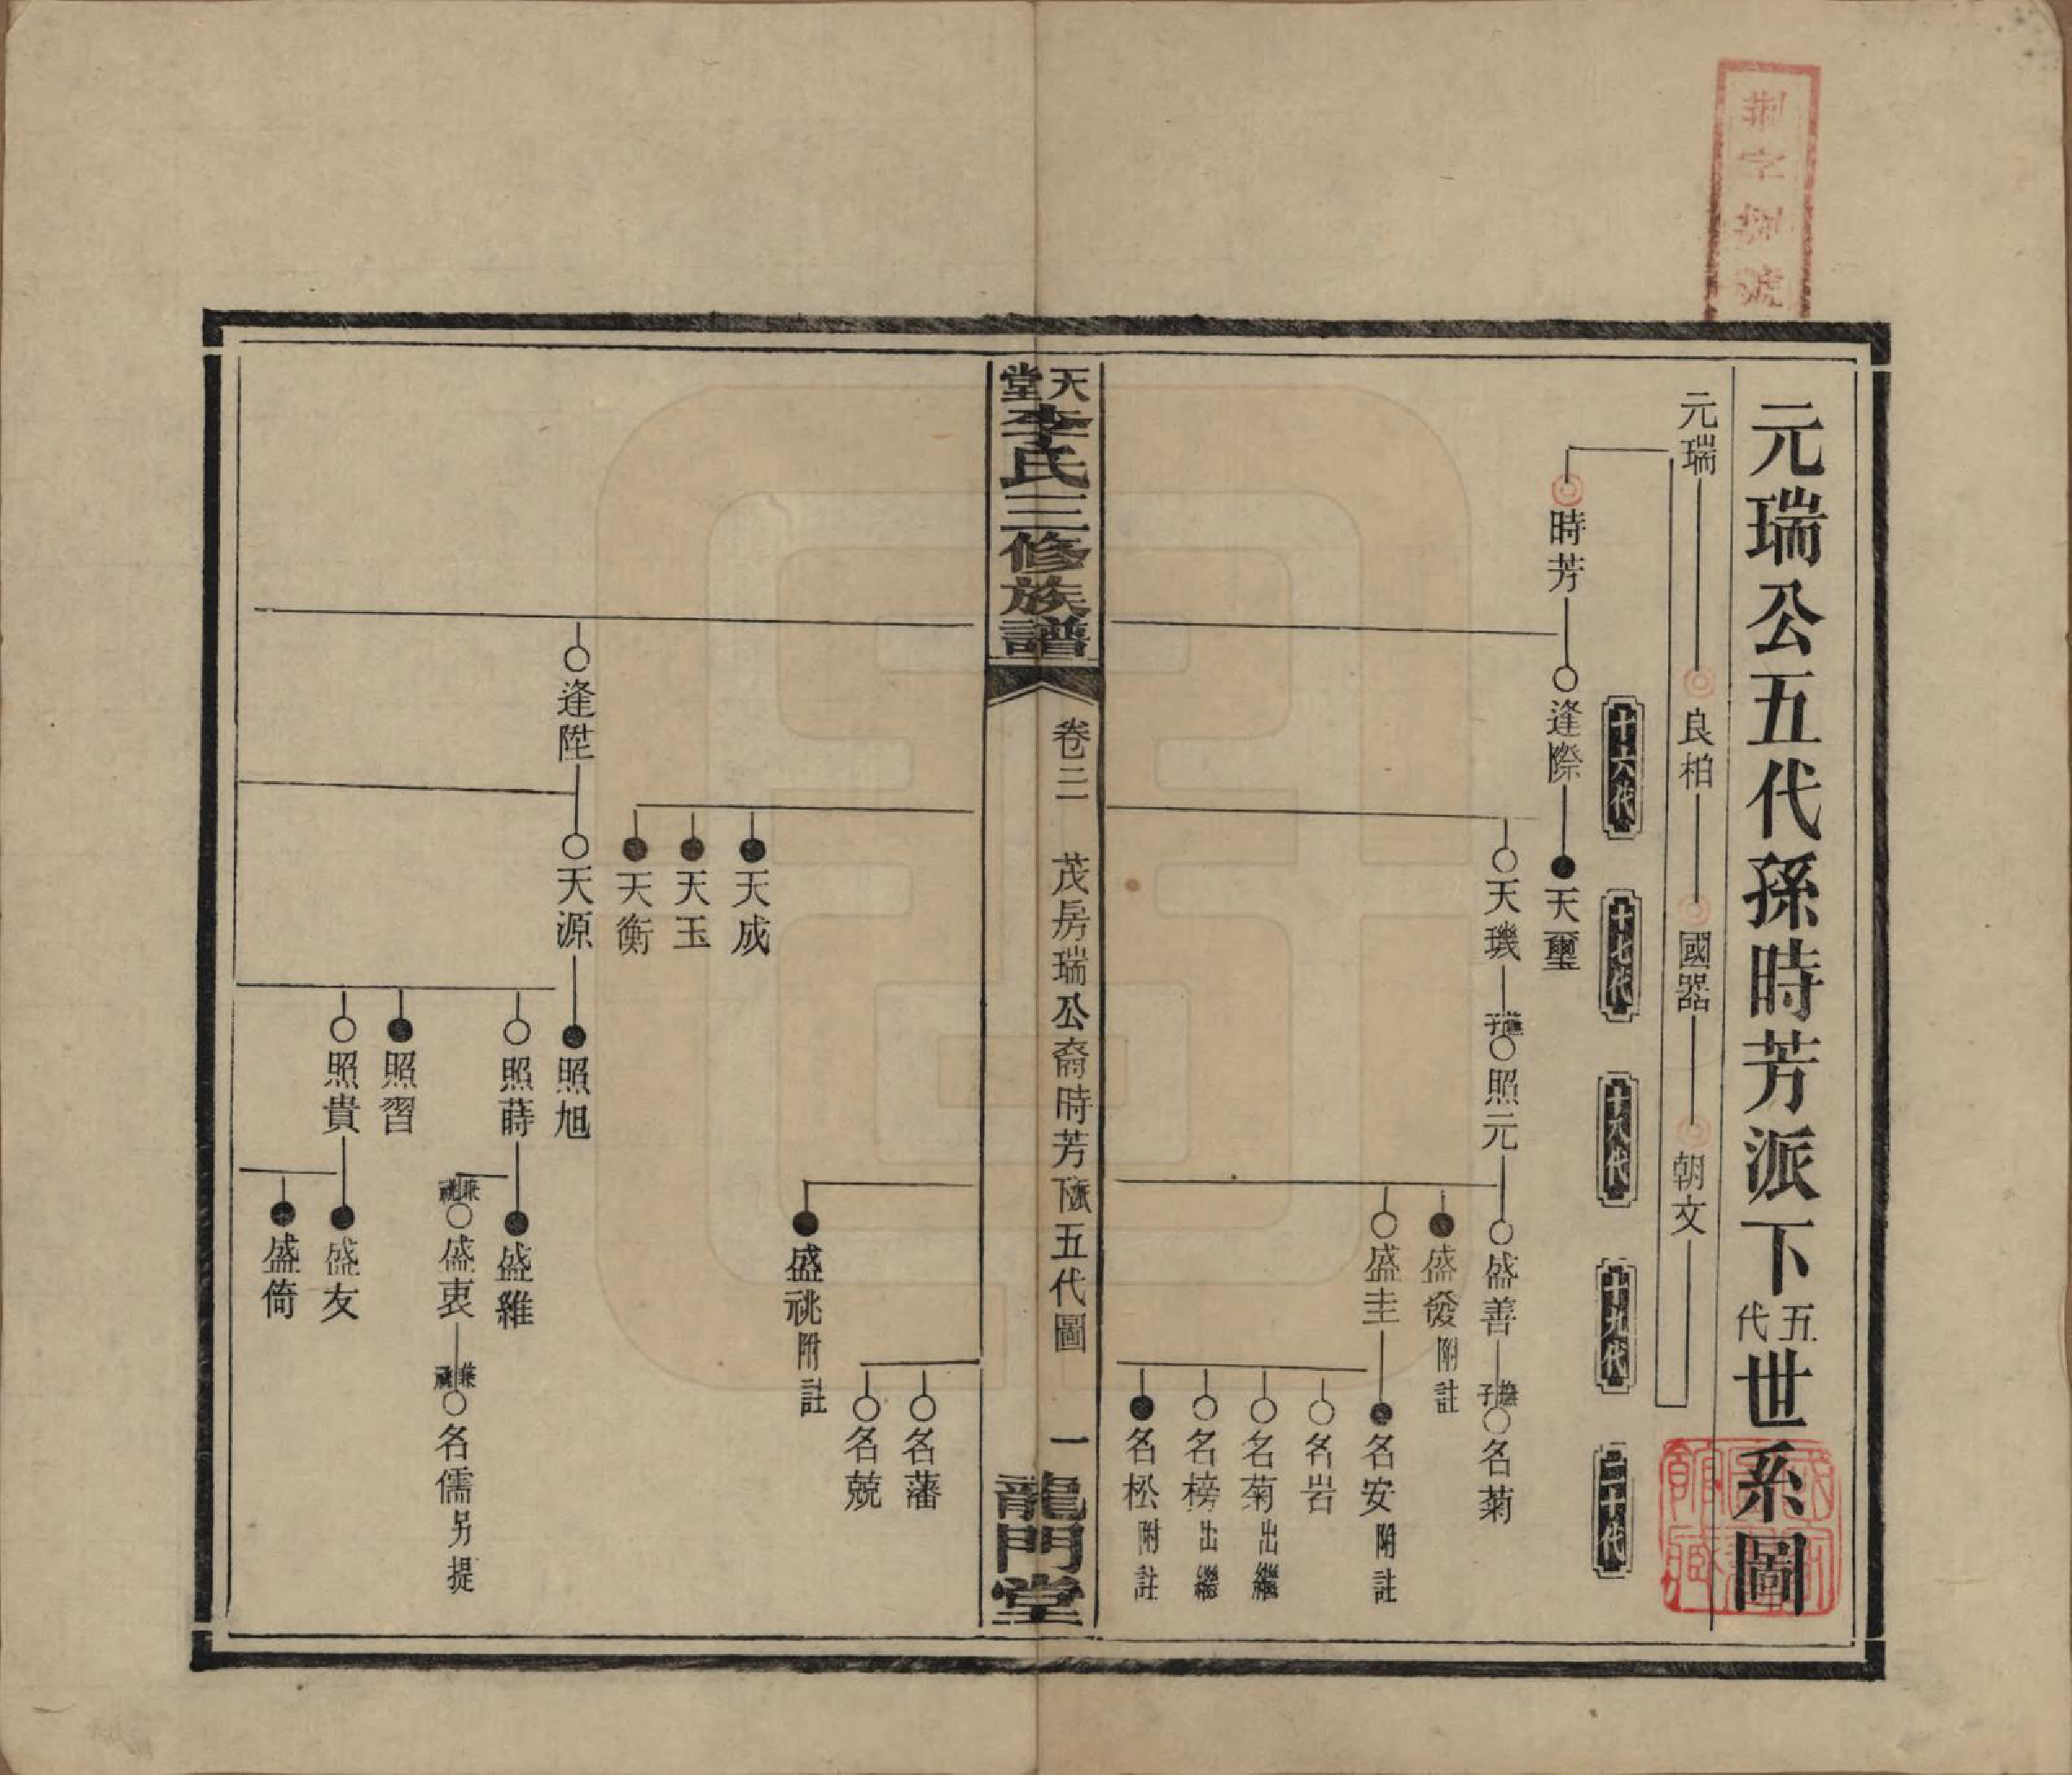 元瑞公五代孫時芳派下五代世系圖
元瑞
良柏
國器
朝文
十六代
十七代
十八代
十九代
二十代
時芳
逢際
天璽
天璣
撫子
照元
盛善
撫子
名菊
盛發附註
盛圭
名安附註
名岩
名菊出繼
名榜出繼
名松附註
天堂李氏三修族譜
卷二 茂房瑞公裔時芳派下五代圖 一
龍門堂
名藩
名兢
盛祧附註
天成
天玉
天衡
逢陞
天源
照旭
照蒔
盛維
兼祧
盛衷
兼祧
名儒另提
照習
照貴
盛友
盛倚
荆字 號